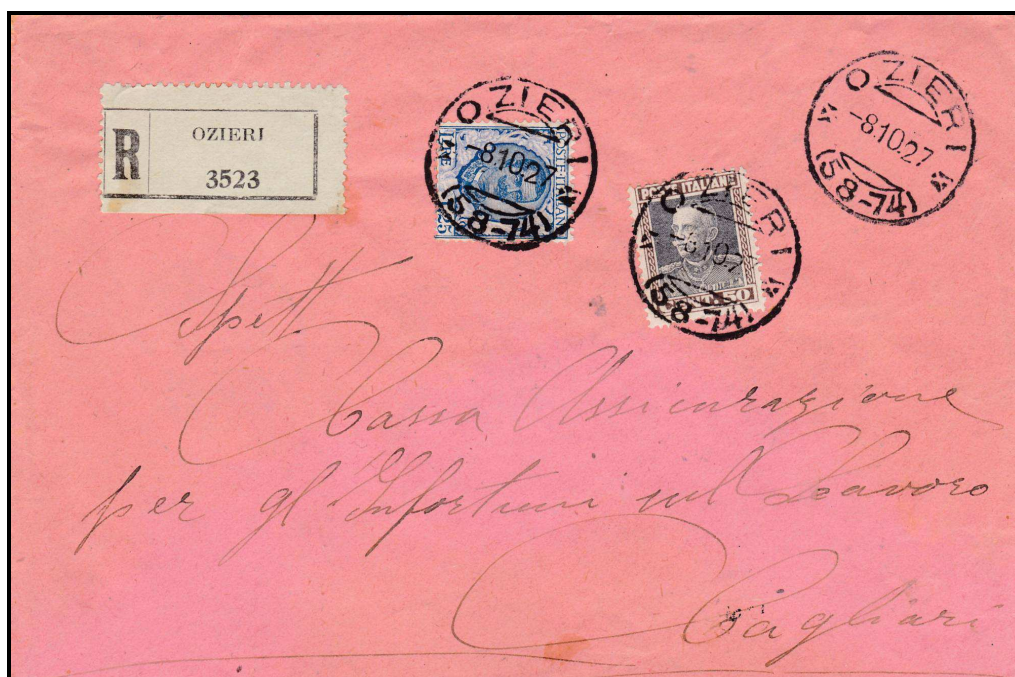 R
OZIERI
3523
POSTE ITALIANE
LIRE 1,25
OZIERI
-8.10.27
(58-74)
POSTE ITALIANE
CENT. 50
OZIERI
-8.10.27
(58-74)
OZIERI
-8.10.27
(58-74)
Spett
Cassa Assicurazione
per gl'Infortuni sul Lavoro
Cagliari